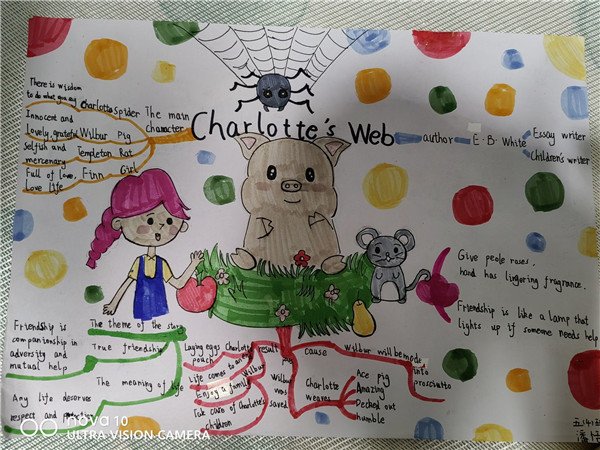 There is wisdom
Charlotte spider
Innocent and
Lovely, grateful Wilbur Pig
Selfish and Templeton Rat
mercenary
Full of love, Finn Girl
Love life
The main
character
Charlotte's Web
author
E. B. White
Essay writer
Children's writer
Give peole roses,
hand has lingering fragrance.
Friendship is like a lamp that
lights up if someone needs help
The theme of the story
Friendship is
companionship in
adversity and
mutual help
True friendship
The meaning of life
Any life deserves
respect and
Laying eggs Charlotte
pouch
Life comes to an end
Enjoy a family Wilbur
Take care of Charlotte's
children
result
Wilbur
was
saved
cause
Wilbur will be made
into
prosciutto
Charlotte
weaves
Ace pig
Amazing
Decked out
humble
nova 10
ULTRA VISION CAMERA